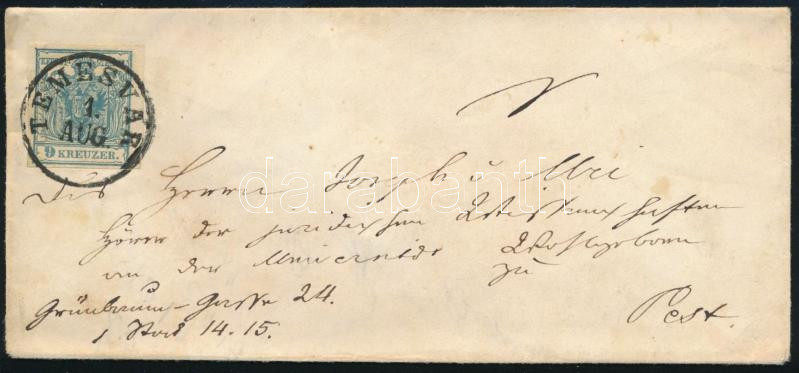 TEMESVAR
1.
AUG.
9 KREUZER.
Herrn Joseph v
Hörer der juridischen Wissenschaften
an der Wohlgeboren
zu
Grünbaum-Gasse 24. Pest.
1 Stock 14. 15.
darabanth